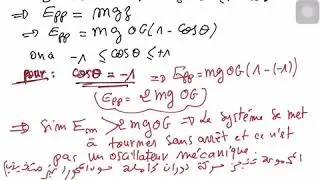 ⇒ Epp = mgz
⇒ Epp = mg OG (1 - cosθ)
on a -1 ≤ cosθ ≤ +1
pour : cosθ = -1 ⇒ Epp = mg OG (1 - (-1))
Epp = 2mg OG
⇒ Si Em > 2mg OG ⇒ le système se met
à tourner sans arrêt et ce n'est
pas un oscillateur mécanique.
المجموعة تنجز حركة دوران كاملة